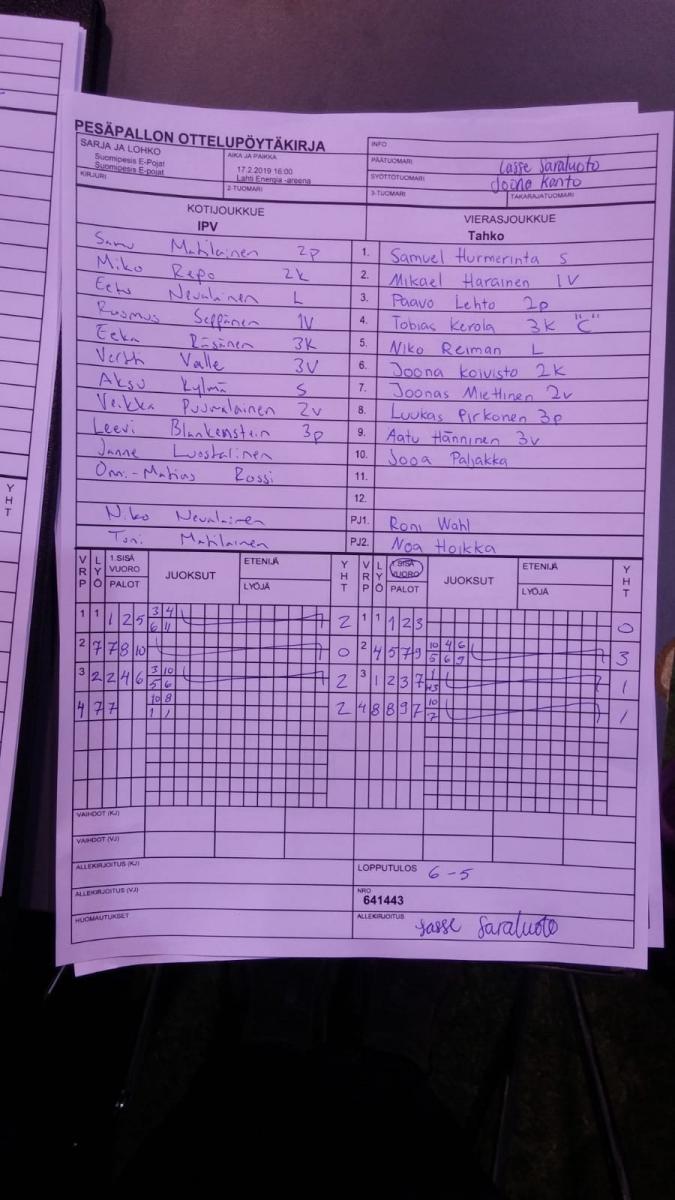 PESÄPALLON OTTELUPÖYTÄKIRJA
SARJA JA LOHKO
Suomipesis E-Pojat
Suomipesis E-pojat
AIKA JA PAIKKA
17.2.2019 16:00
Lahti Energia -areena
INFO
PÄÄTUOMARI Lasse Saraluoto
SYÖTTÖTUOMARI Joona Kanto
KIRJURI
2-TUOMARI
3-TUOMARI
TAKARAJATUOMARI
KOTIJOUKKUE
IPV
VIERASJOUKKUE
Tahko
Samu Matilainen 2p
1. Samuel Hurmerinta S
Miko Repo 2k
2. Mikael Harainen 1V
Eetu Nevalainen L
3. Paavo Lehto 2p
Rasmus Seppänen 1V
4. Tobias Kerola 3K "C"
Eeka Räsänen 3K
5. Niko Reiman L
Valle 3V
6. Joona Koivisto 2K
Aksu Kylmä S
7. Joonas Miettinen 2v
Veikka Puumalainen 2v
8. Luukas Pirkonen 3p
Leevi Blankenstein 3p
9. Aatu Hänninen 3v
Janne Luostalinen
10. Jooa Paljakka
Onni-Matias Rossi
11.
12.
Niko Nevalainen
PJ1. Roni Wahl
Toni Matilainen
PJ2. Noa Hoikka
VRP LYÖ 1.SISÄ VUORO PALOT JUOKSUT ETENIJÄ LYÖJÄ YHT
VRP LYÖ 1.SISÄ VUORO PALOT JUOKSUT ETENIJÄ LYÖJÄ YHT
1 1 1 2 5 3 4 2 1 1 1 2 3 0
6 11
2 7 7 8 10 0 2 4 5 7 9 10 4 6 3
5 6 9
3 2 2 4 6 3 10 2 3 1 2 3 7 1 1
5 6
4 7 7 10 8 2 4 8 8 9 7 10 1
1 1 7
VAIHDOT (KJ)
VAIHDOT (VJ)
ALLEKIRJOITUS (KJ)
LOPPUTULOS 6-5
ALLEKIRJOITUS (VJ)
NRO
641443
HUOMAUTUKSET
ALLEKIRJOITUS Lasse Saraluoto
YHT